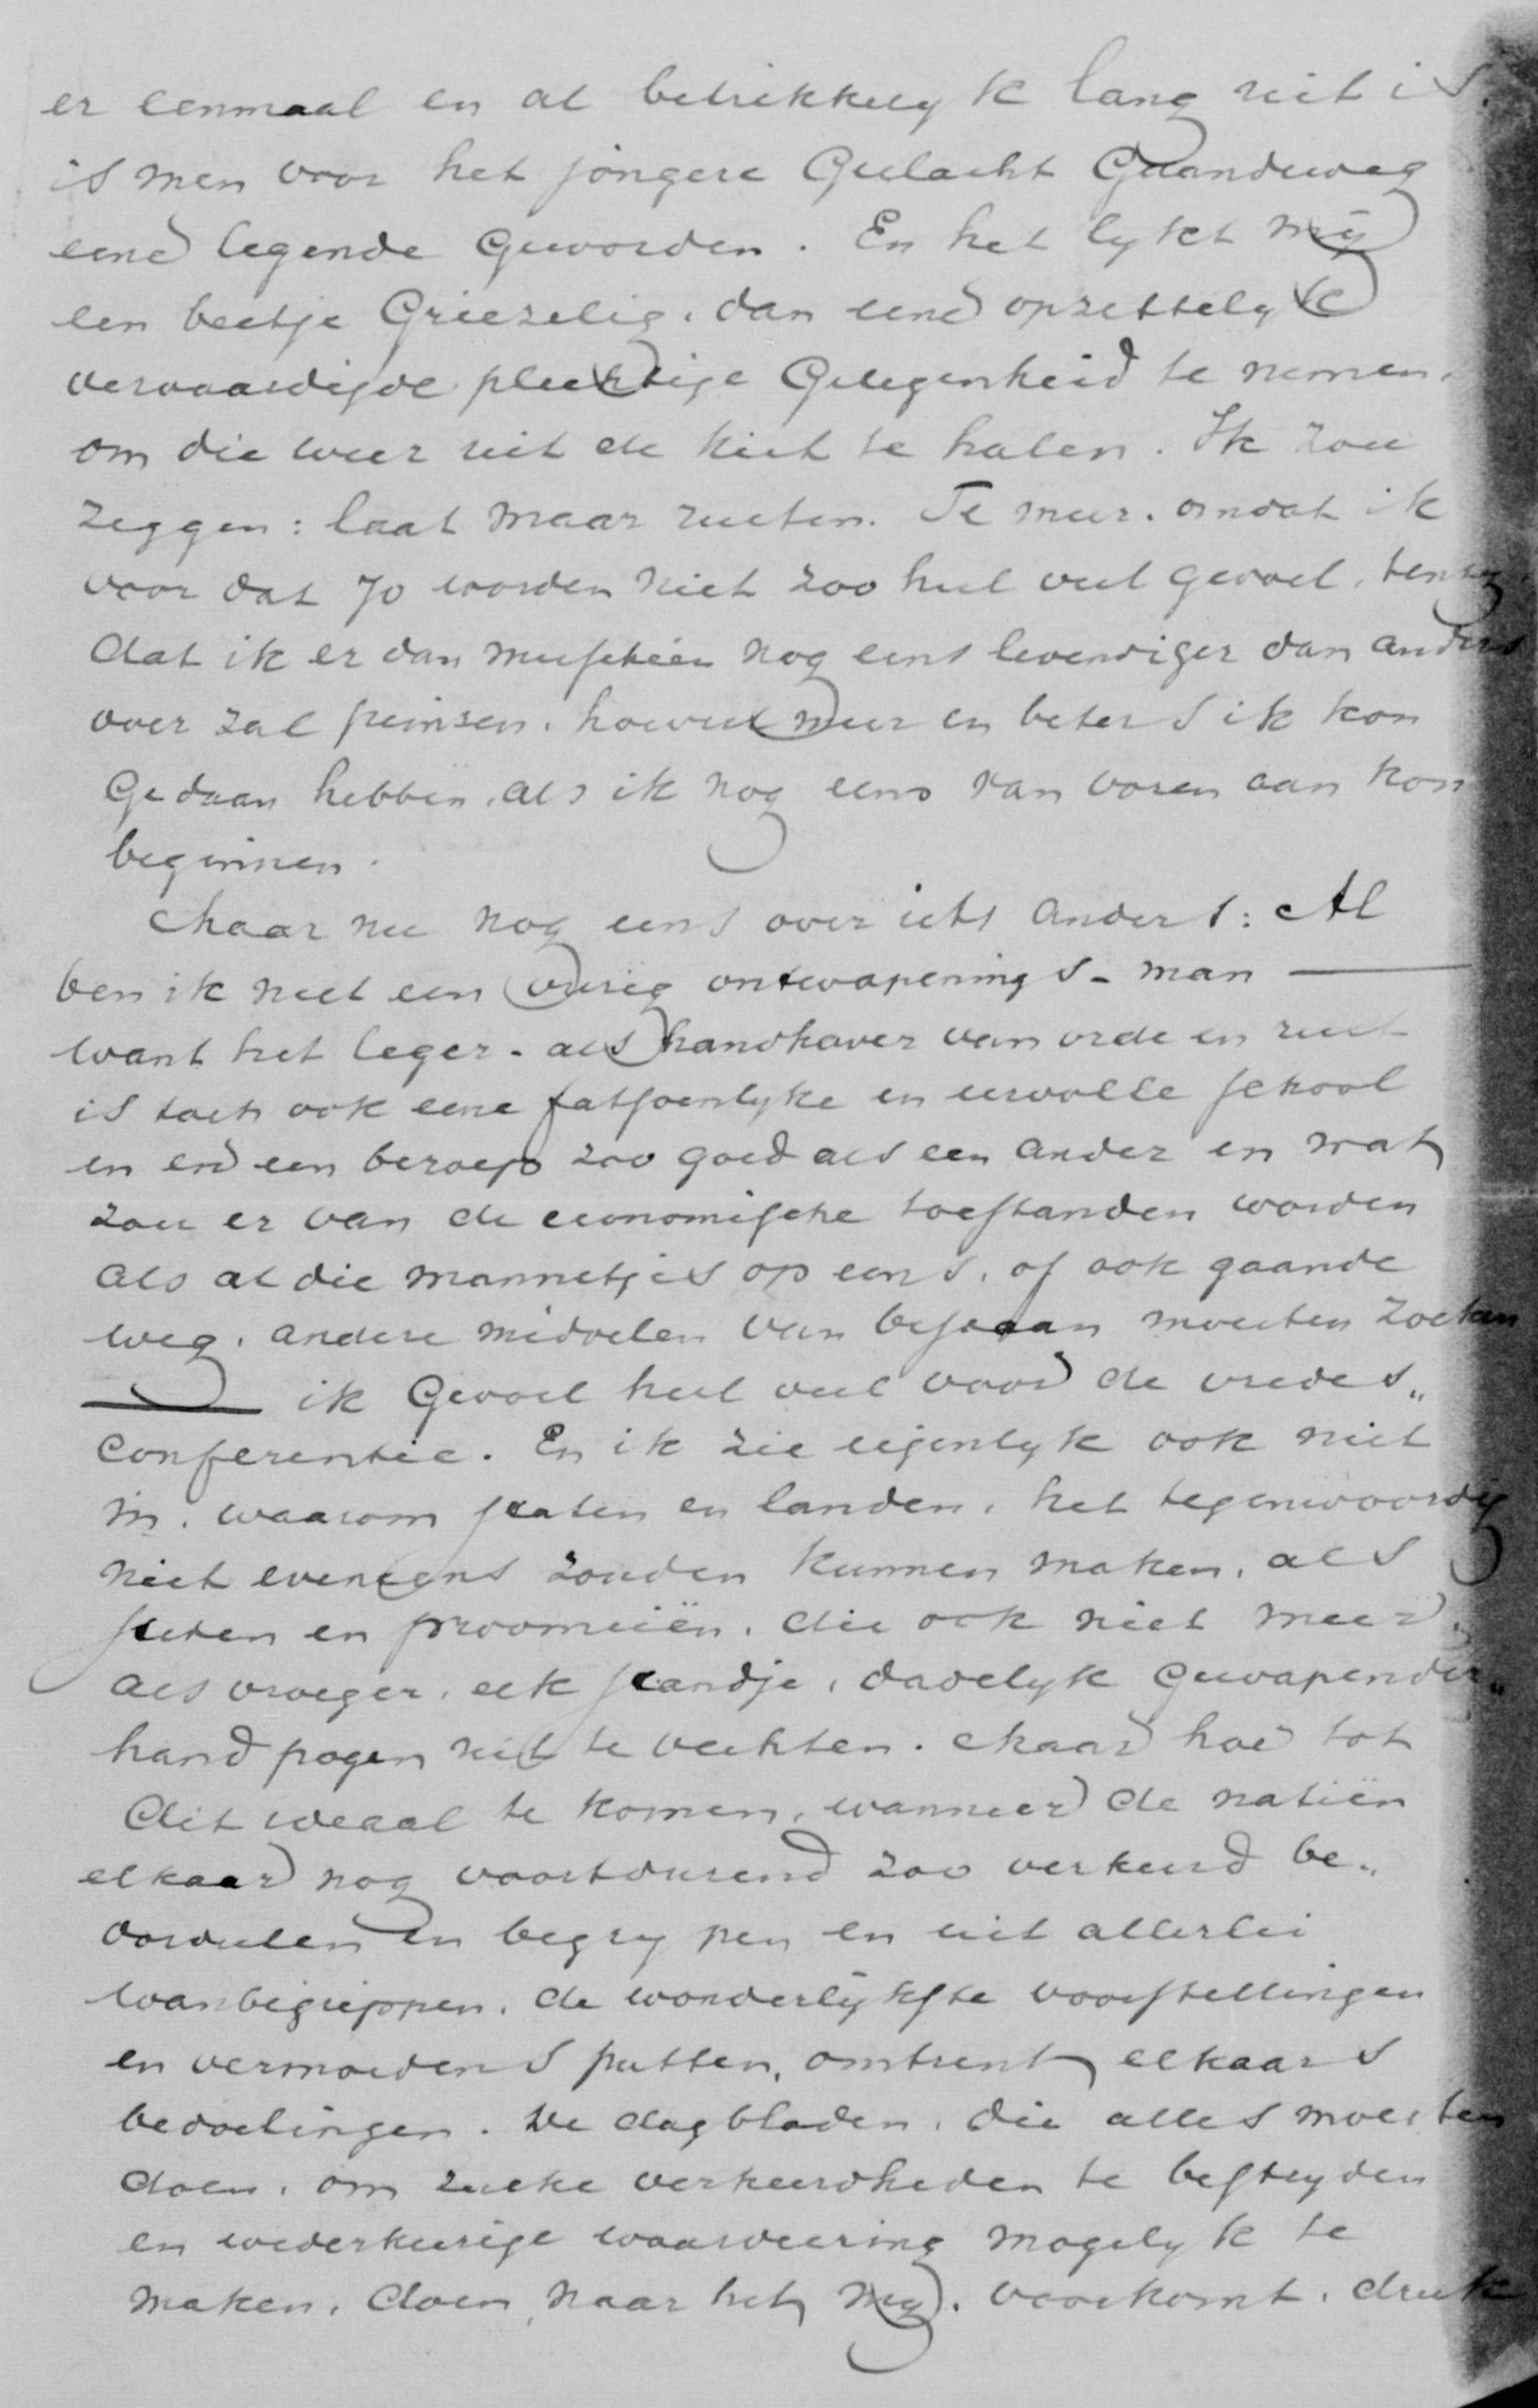 er eenmaal en al betrekkelyk lang uit is.
is men voor het jongere Geslacht Gaandeweg
eene legende Geworden. En het lykt mij
een beetje Griezelig. dan eene opzettelyk
vervaardigde plechtige Gelegenheid te nemen.
om die weer uit de kist te halen. Ik zou
zeggen: laat maar rusten. Te meer. omdat ik
voor dat 70 worden niet zoo heel veel gevoel, tenzy
dat ik er dan misschien nog eens levendiger dan anders
over zal peinzen. hoeveel meer en beters ik kon
Gedaan hebben, als ik nog eens van voren aan kon
beginnen.
Maar nu nog eens over iets anders: Al
ben ik niet een vurig ontwapenings-man —
want het leger - als handhaver van orde en rust
is toch ook eene fatsoenlyke en eervolle school
en en een beroep zoo goed als een ander en wat
zou er van de economische toestanden worden
als al die mannetjes op eens, of ook gaande
weg, andere middelen van bestaan moesten zoeken
— ik Gevoel heel veel voor de vredes„
conferentie. En ik zie eigenlyk ook niet
in, waarom staten en landen, het tegenwoordig
niet eveneens zouden kunnen maken, als
steden en provinciën, die ook niet meer,
als vroeger, elk standje, dadelyk Gewapender„
hand pogen uit te vechten. Maar hoe tot
dit ideaal te komen, wanneer de natiën
elkaar nog voortdurend zoo verkeerd be„
oordeelen en begrypen en uit allerlei
wanbegrippen, de wonderlijkste voorstellingen
en vermoedens putten, omtrent elkaars
bedoelingen. De dagbladen, die alles moesten
doen, om zulke verkeerdheden te bestryden
en wederkeerige waardeering mogelyk te
maken, doen, naar het my, voorkomt, druk